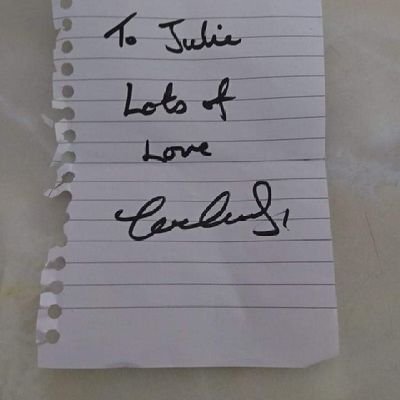 To Julie
Lots of
Love